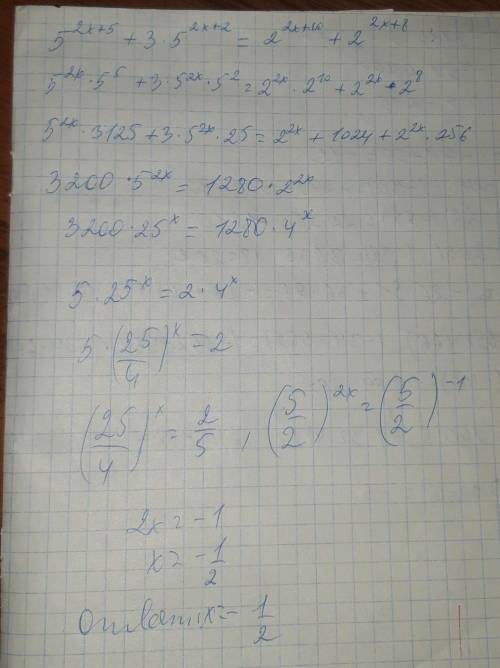 5^{2x+5} + 3 · 5^{2x+2} = 2^{2x+10} + 2^{2x+8}
5^{2x} · 5^5 + 3 · 5^{2x} · 5^2 = 2^{2x} · 2^{10} + 2^{2x} · 2^8
5^{2x} · 3125 + 3 · 5^{2x} · 25 = 2^{2x} + 1024 + 2^{2x} · 256
3200 · 5^{2x} = 1280 · 2^{2x}
3200 · 25^x = 1280 · 4^x
5 · 25^x = 2 · 4^x
5 · (25/4)^x = 2
(25/4)^x = 2/5 , (5/2)^{2x} = (5/2)^{-1}
2x = -1
x = -1/2
Ответ: x = -1/2